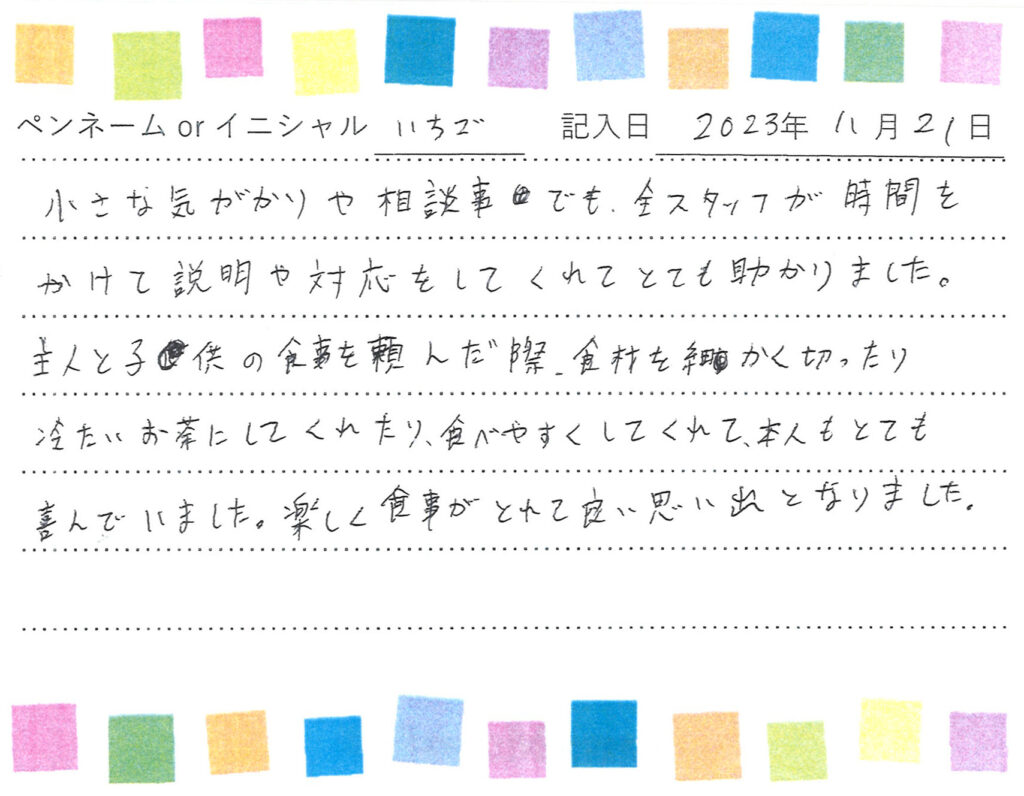 ペンネーム or イニシャル いちご 記入日 2023年 11月21日
小さな気がかりや相談事でも、全スタッフが時間を
かけて説明や対応をしてくれてとても助かりました。
主人と子供の食事を頼んだ際、食材を細かく切ったり
冷たいお茶にしてくれたり、食べやすくしてくれて、本人もとても
喜んでいました。楽しく食事がとれて良い思い出となりました。